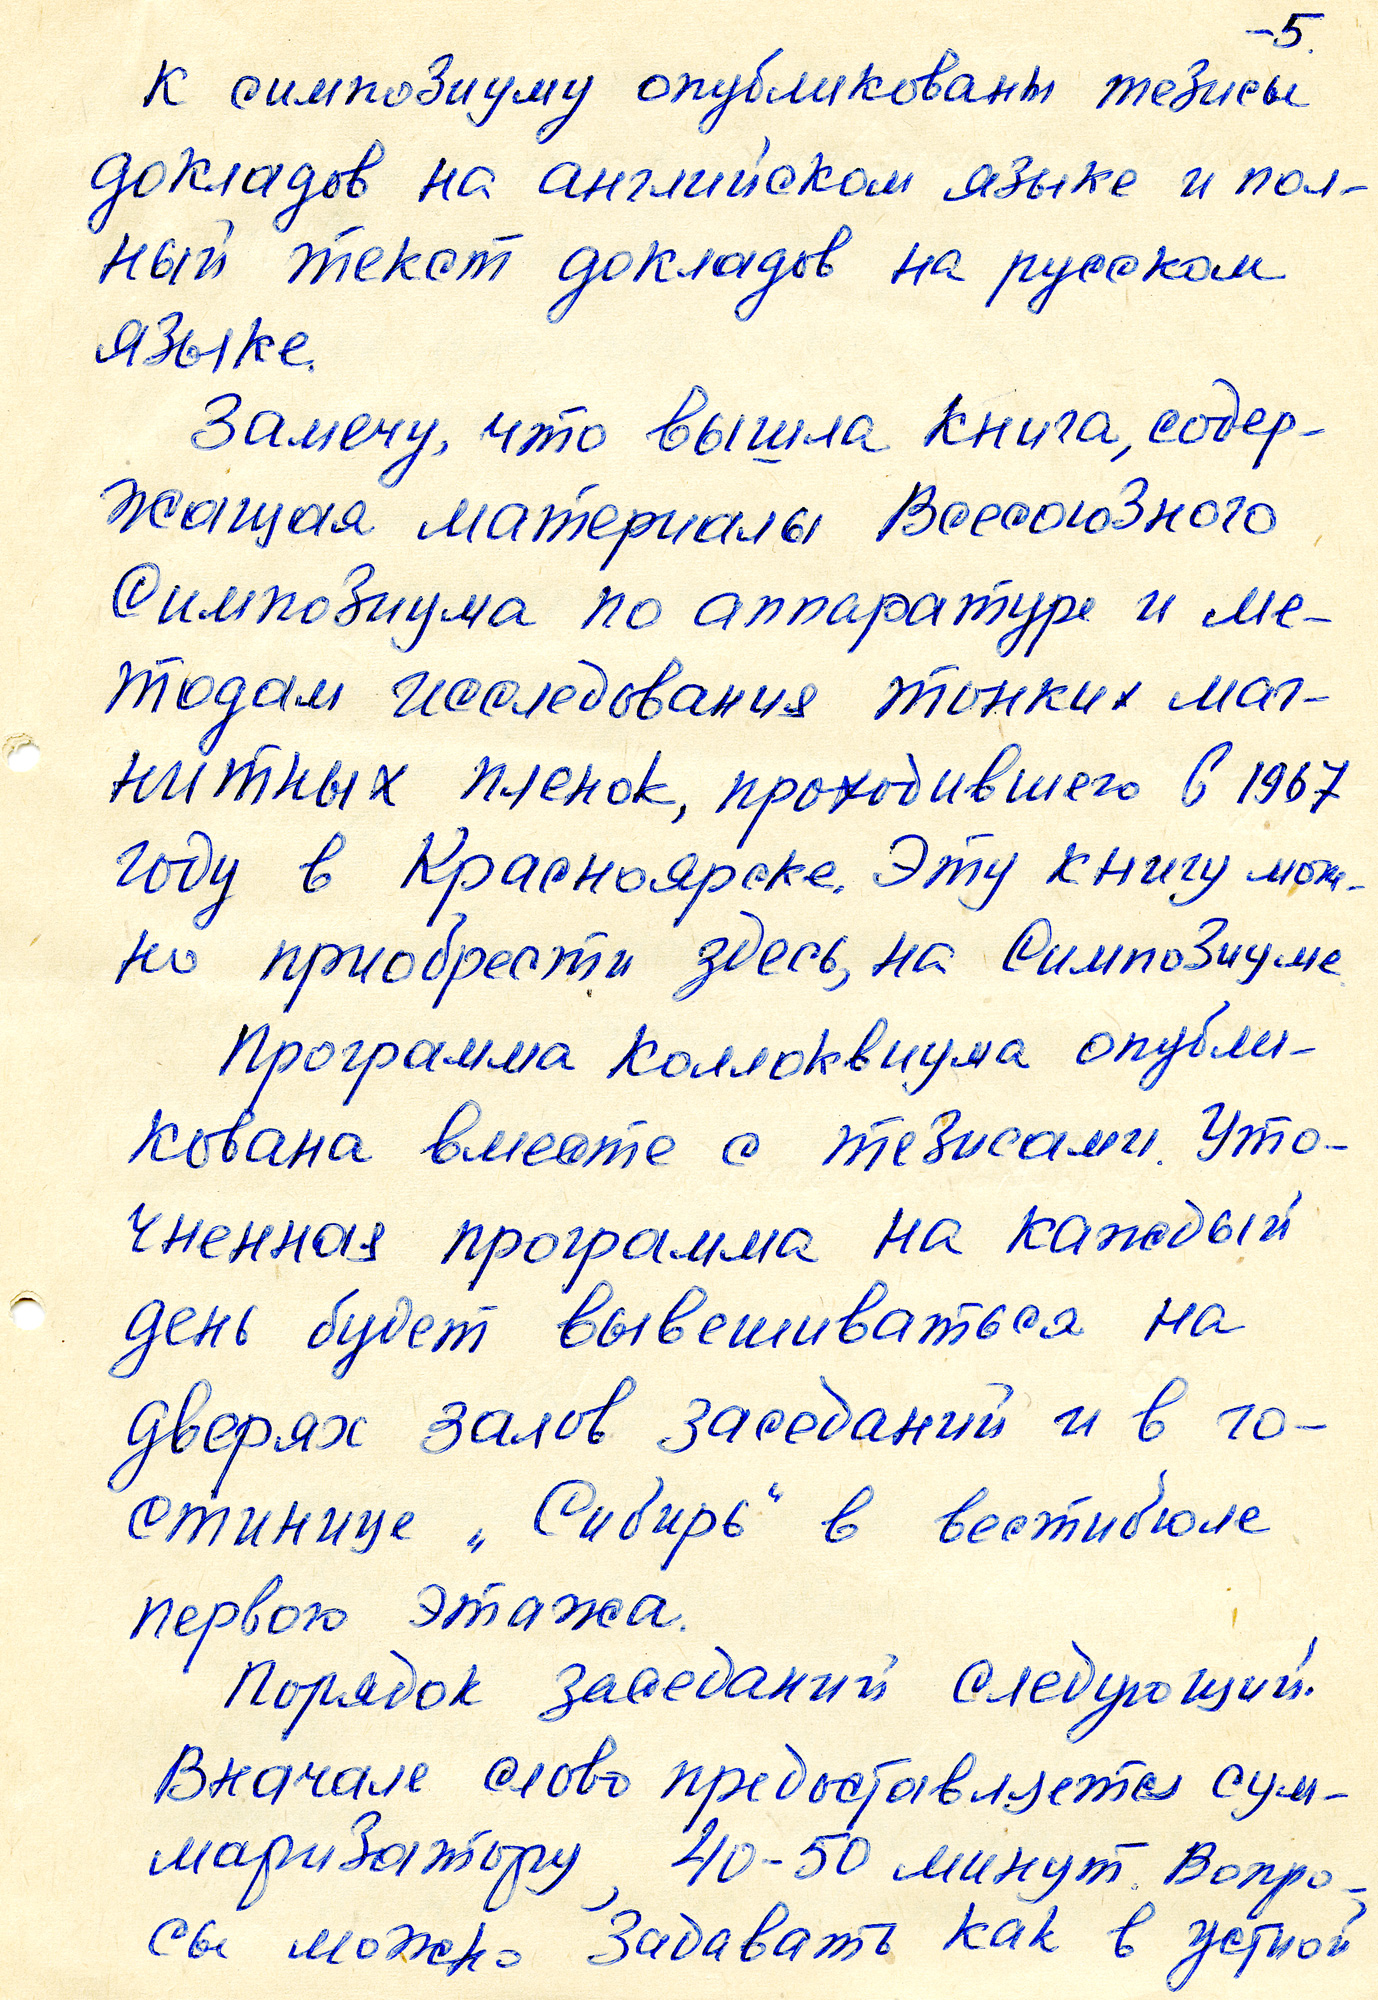 -5.
К симпозиуму опубликованы тезисы
докладов на английском языке и пол-
ный текст докладов на русском
языке.
Замечу, что вышла книга, содер-
жащая материалы Всесоюзного
Симпозиума по аппаратуре и ме-
тодам исследования тонких маг-
нитных пленок, проходившего в 1967
году в Красноярске. Эту книгу мож-
но приобрести здесь, на Симпозиуме.
Программа коллоквиума опубли-
кована вместе с тезисами. Уто-
чненная программа на каждый
день будет вывешиваться на
дверях залов заседаний и в го-
стинице „Сибирь“ в вестибюле
первого этажа.
Порядок заседаний следующий.
Вначале слово предоставляется сум-
маризатору, 40-50 минут. Вопро-
сы можно задавать как в устной